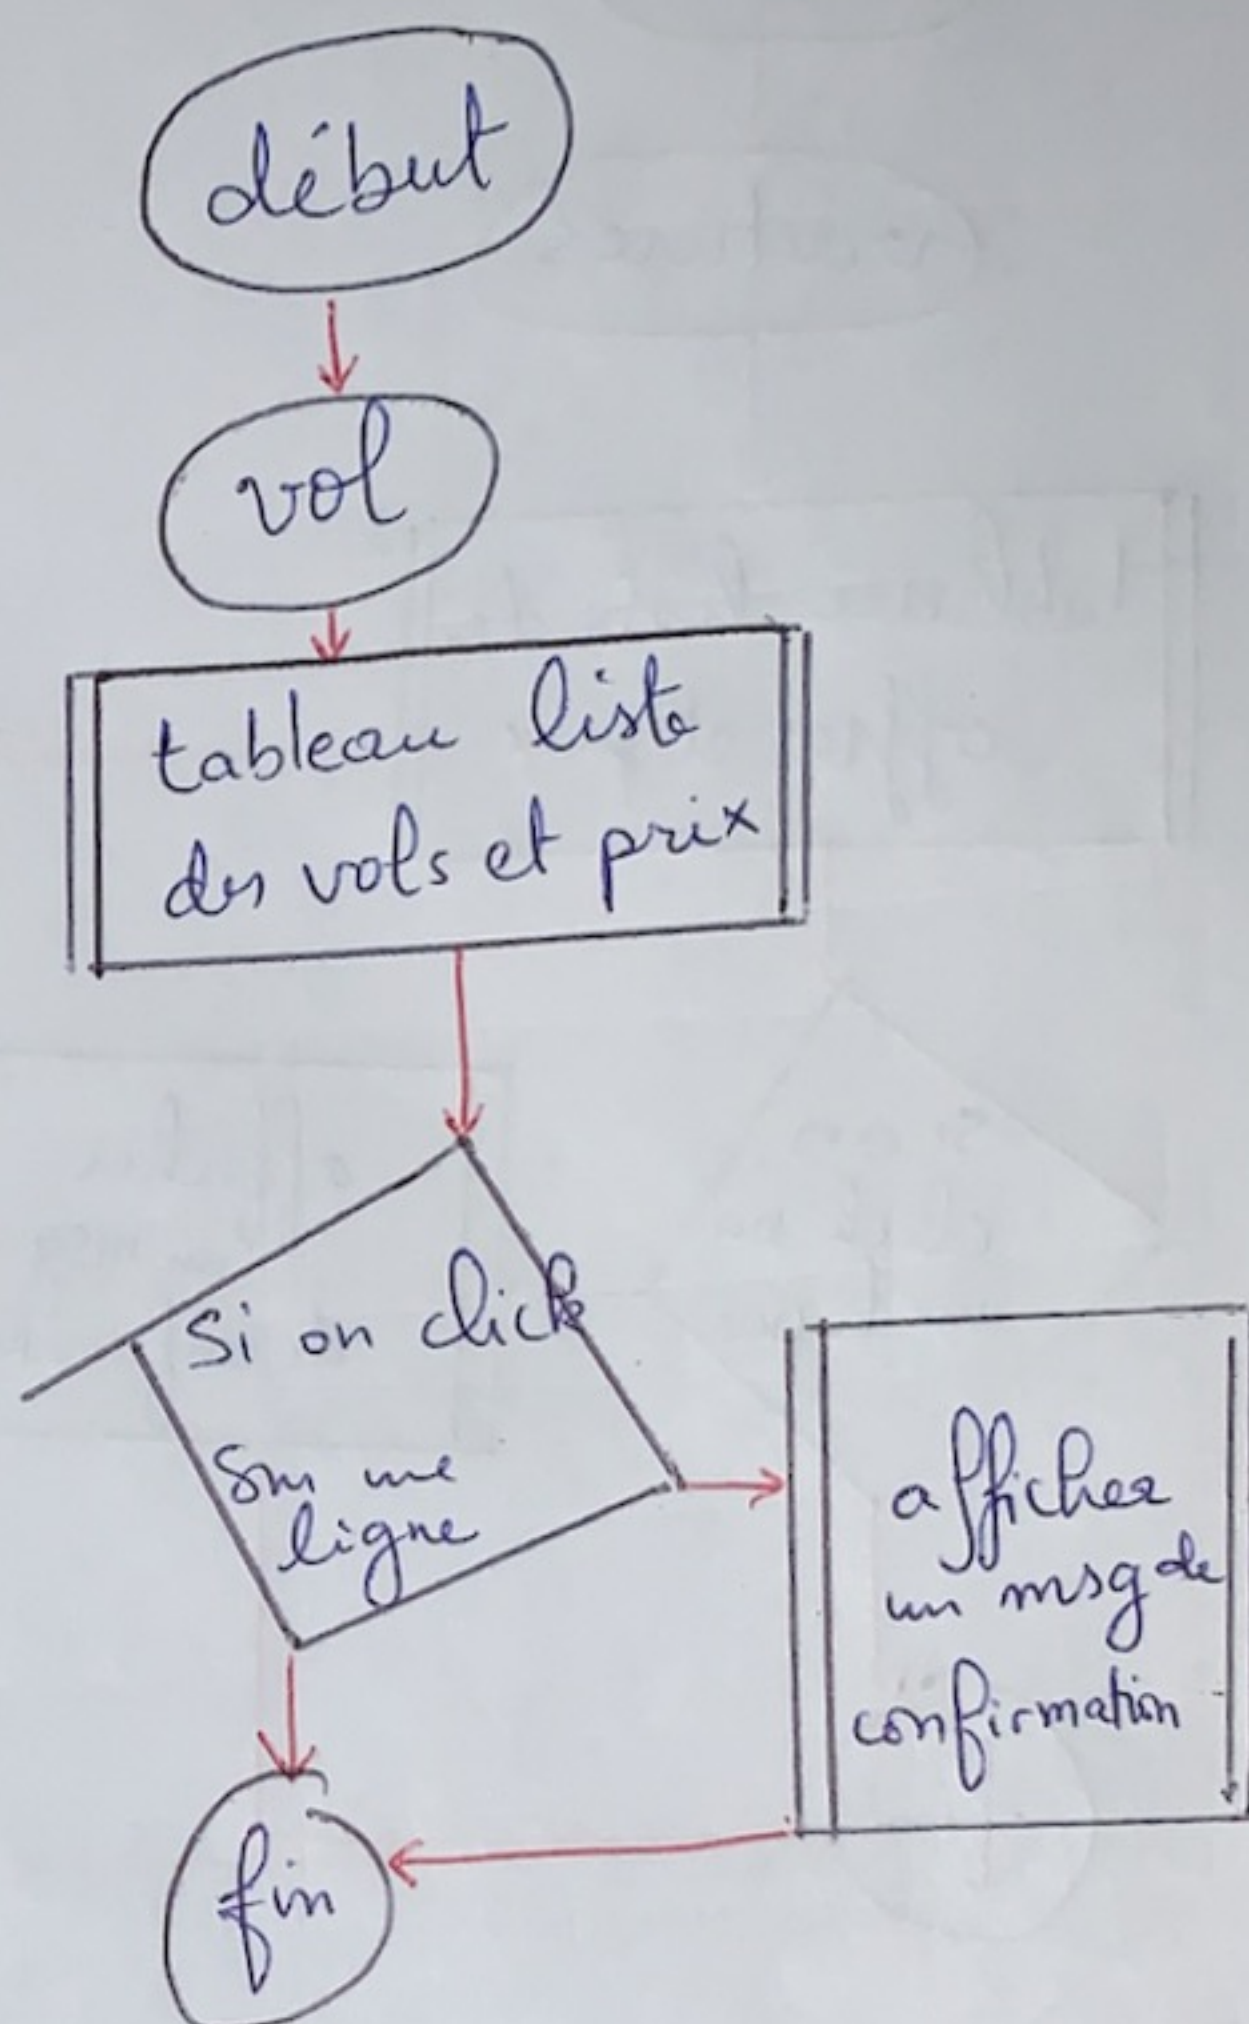 début
vol
tableau liste
des vols et prix
Si on click
sur une
ligne
afficher
un msg de
confirmation
fin